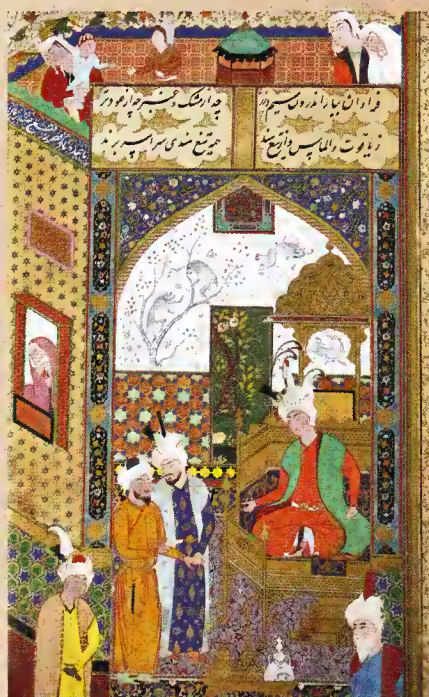 فراوان ببار اندرون سیم و زر
چه از مشک و عنبر چه از عود تر
ز یاقوت و الماس و از تیغ هند
همه تیغ هندی سراسر پرند